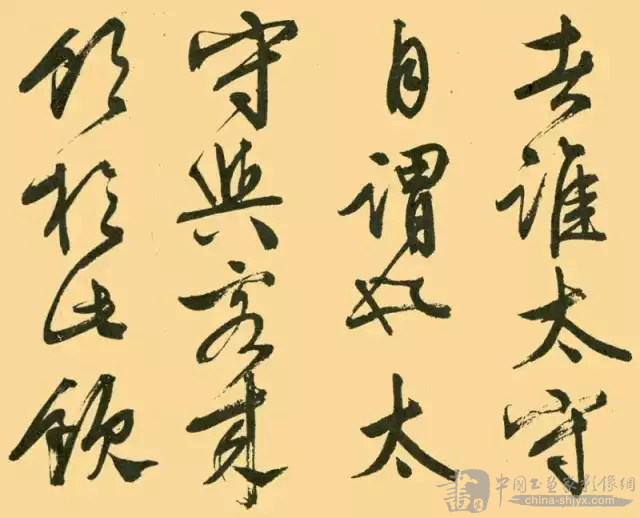 者誰太守
自謂也太
守與客來
飲於此飲
書
china-shjyx.com